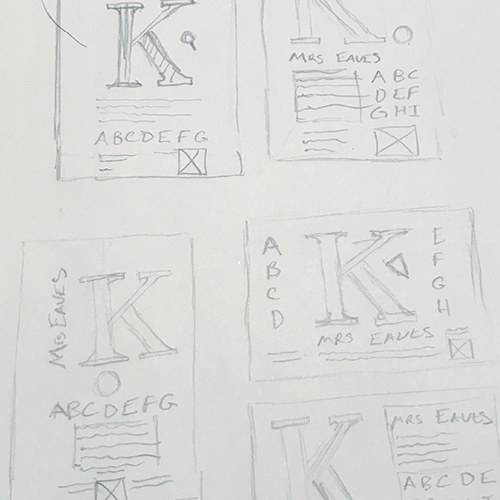 K
ABCDEFG
K
MRS EAVES
ABC
DEF
GHI
MRS EAVES
K
ABCDEFG
A
B
C
D
K
E
F
G
H
MRS EAVES
K
MRS EAVES
ABCDE